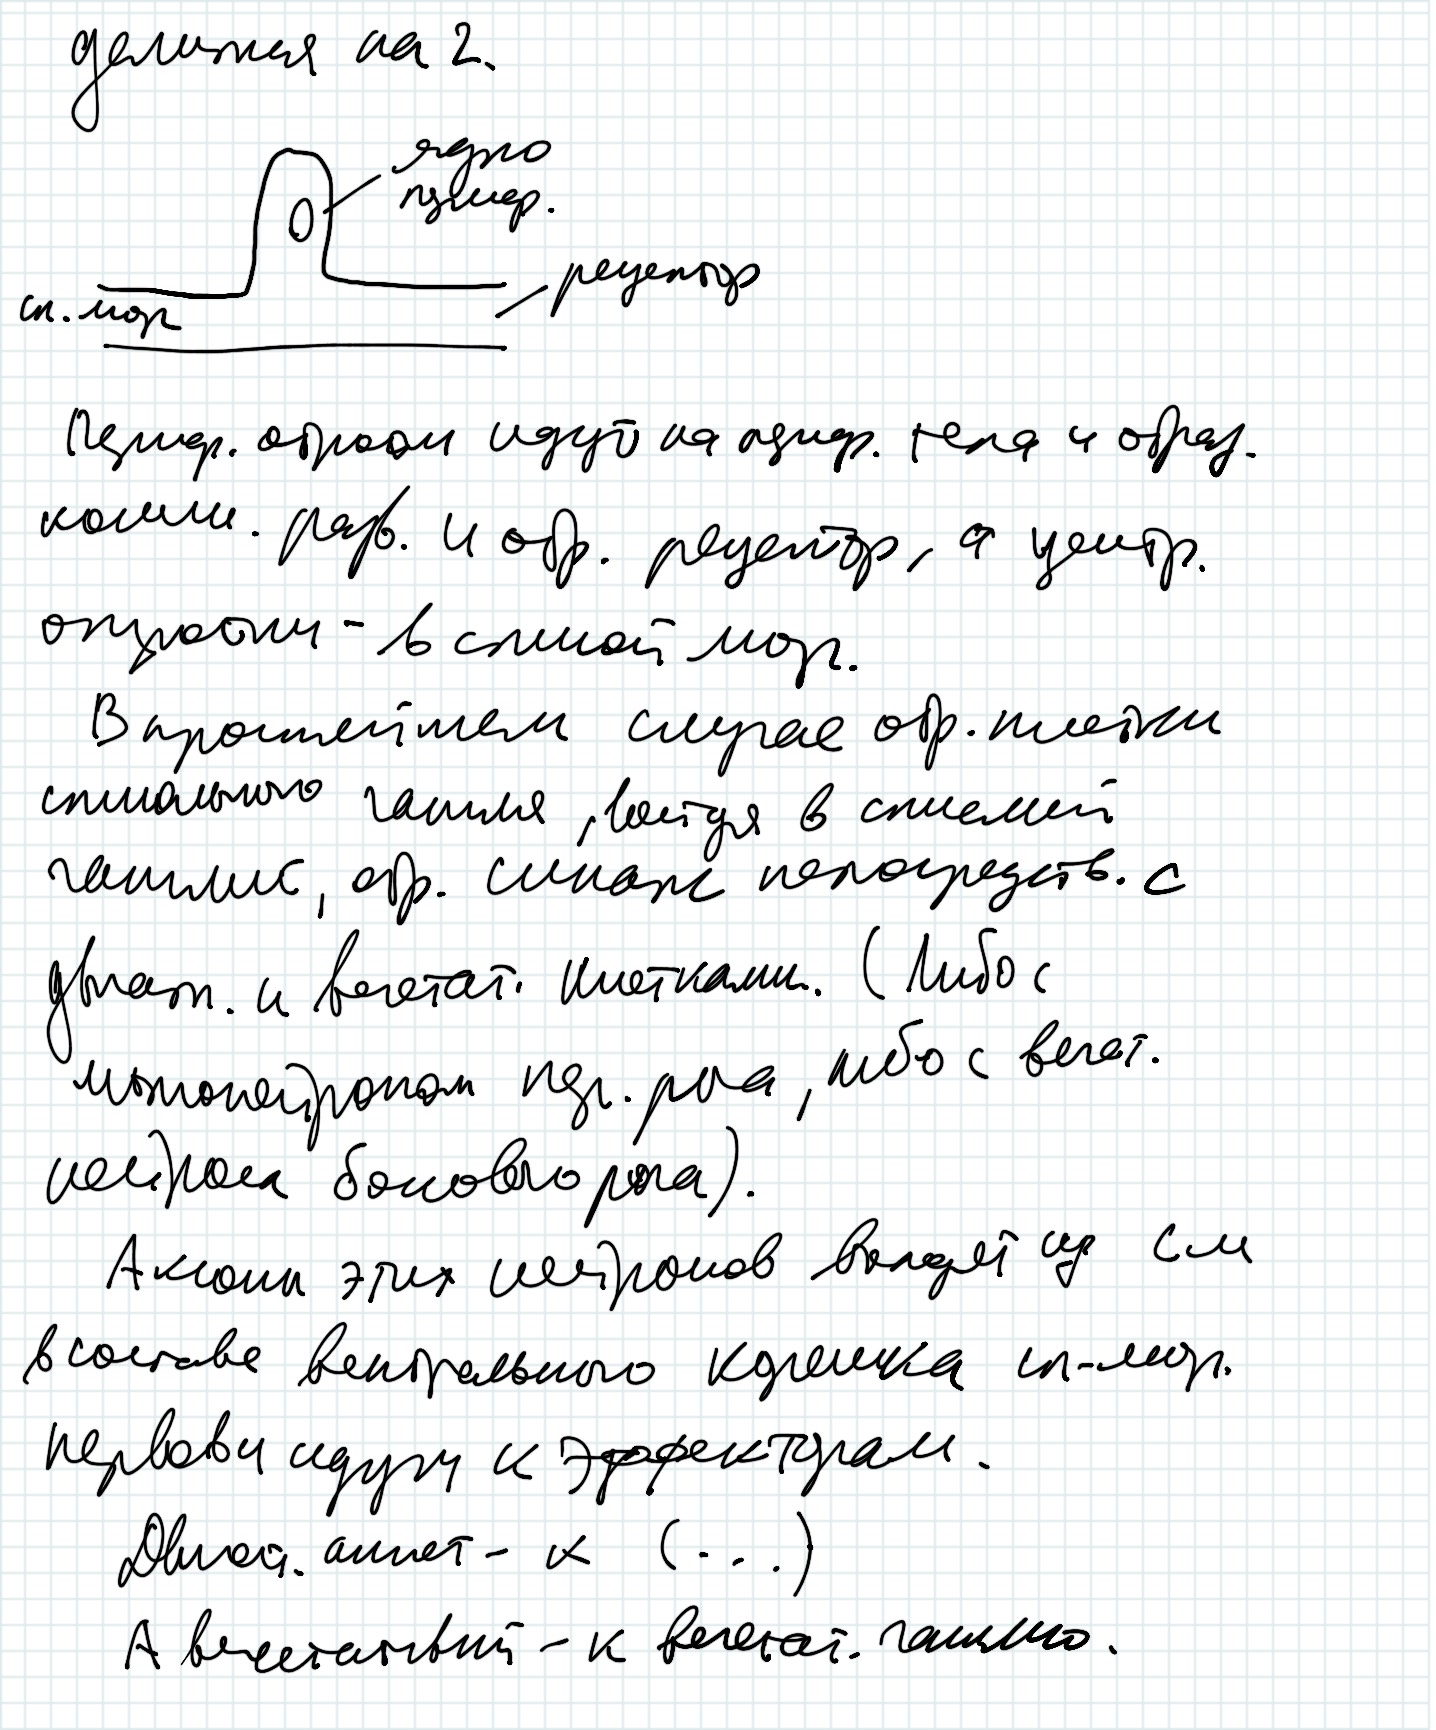 делится на 2.
ядро
перифер.
рецептор
сп. мозг
Периф. отростки идут на периф. тела и образ.
конц. разв. и обр. рецептор, а центр.
отростки - в спиной мозг.
В простейшем случае отр. клетки
спинального ганглия, войдя в спинный
ганглий, обр. синапс непосредств. с
двигат. и вегетат. клетками. (Либо с
мотонейроном пер. рога, либо с вегет.
нейрон бокового рога).
Аксоны этих нейронов выходят из СМ
в составе вентрального корешка сп-мозг.
нервов и идут к эффекторам.
Двигат. - к (...)
А вегетативный - к вегетат. ганглию.